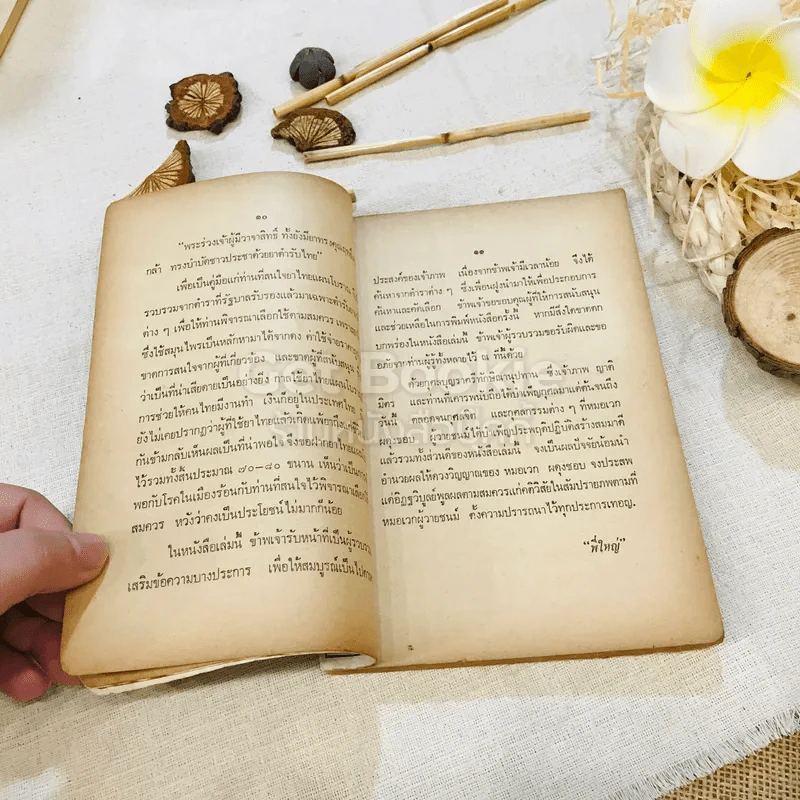 ๑๐
"พระร่วงเจ้าผู้มีวาจาสิทธิ์ ทั้งยังมียาทรงคุณ
กล้า ทรงบำบัดชาวประชาด้วยยาตำรับไทย"
เพื่อเป็นคู่มือแก่ท่านที่สนใจยาไทยแผนโบราณ
รวบรวมจากตำราที่รัฐบาลรับรองแล้วมาเฉพาะตำรับ
ต่าง ๆ เพื่อให้ท่านพิจารณาเลือกใช้ตามสมควร
ซึ่งใช้สมุนไพรเป็นหลักหามาได้จากดง ค่าใช้จ่าย
ขาดการสนใจจากผู้ที่เกี่ยวข้อง และขาดผู้ที่สนับสนุน
ว่าเป็นที่น่าเสียดายเป็นอย่างยิ่ง การใช้ยาไทยแผน
การช่วยให้คนไทยมีงานทำ เงินก็อยู่ในประเทศไทย
ยังไม่เคยปรากฏว่าผู้ที่ใช้ยาไทยแล้วเกิดแพ้ยา
กันข้ามกลับเห็นผลเป็นที่น่าพอใจ จึงขอฝากยาไทย
ไว้รวมทั้งสิ้นประมาณ ๗๐-๘๐ ขนาน เห็นว่าเป็น
พอกับโรคในเมืองร้อนกับท่านที่สนใจไว้พิจารณา
สมควร หวังว่าคงเป็นประโยชน์ไม่มากก็น้อย
ในหนังสือเล่มนี้ ข้าพเจ้ารับหน้าที่เป็นผู้รวบรวม
เสริมข้อความบางประการ เพื่อให้สมบูรณ์เป็นไป
๑๑
ประสงค์ของเจ้าภาพ เนื่องจากข้าพเจ้ามีเวลาน้อย จึงได้
ค้นหาจากตำราต่าง ๆ ซึ่งเพื่อนฝูงนำมาให้เพื่อประกอบการ
ค้นหาและคัดเลือก ข้าพเจ้าขอขอบคุณผู้ที่ให้การสนับสนุน
และช่วยเหลือในการพิมพ์หนังสือครั้งนี้ หากมีสิ่งใดขาดตก
บกพร่องในหนังสือเล่มนี้ ข้าพเจ้าผู้รวบรวมขอรับผิดและขอ
อภัยจากท่านผู้รู้ทั้งหลายไว้ ณ ที่นี้ด้วย
ด้วยกุศลบุญราศรีทักษิณานุปทาน ซึ่งเจ้าภาพ ญาติ
มิตร และท่านที่เคารพนับถือได้บำเพ็ญกุศลมาแต่ต้นจนถึง
วันนี้ กุศลเจตนกุศลจิต และกุศลกรรมต่าง ๆ ที่หมอเวก
ผดุงชอบ ผู้วายชนม์ได้บำเพ็ญประพฤติปฏิบัติสร้างสมมาดี
แล้วรวมทั้งส่วนดีของหนังสือเล่มนี้ จึงเป็นผลปัจจัยน้อมนำ
อำนวยผลให้ดวงวิญญาณของ หมอเวก ผดุงชอบ จงประสพ
แต่อิฏฐวิบูลย์พูลผลตามสมควรแก่คติวิสัยในสัมปรายภพตามที่
หมอเวกผู้วายชนม์ ตั้งความปรารถนาไว้ทุกประการเทอญ.
"พี่ใหญ่"